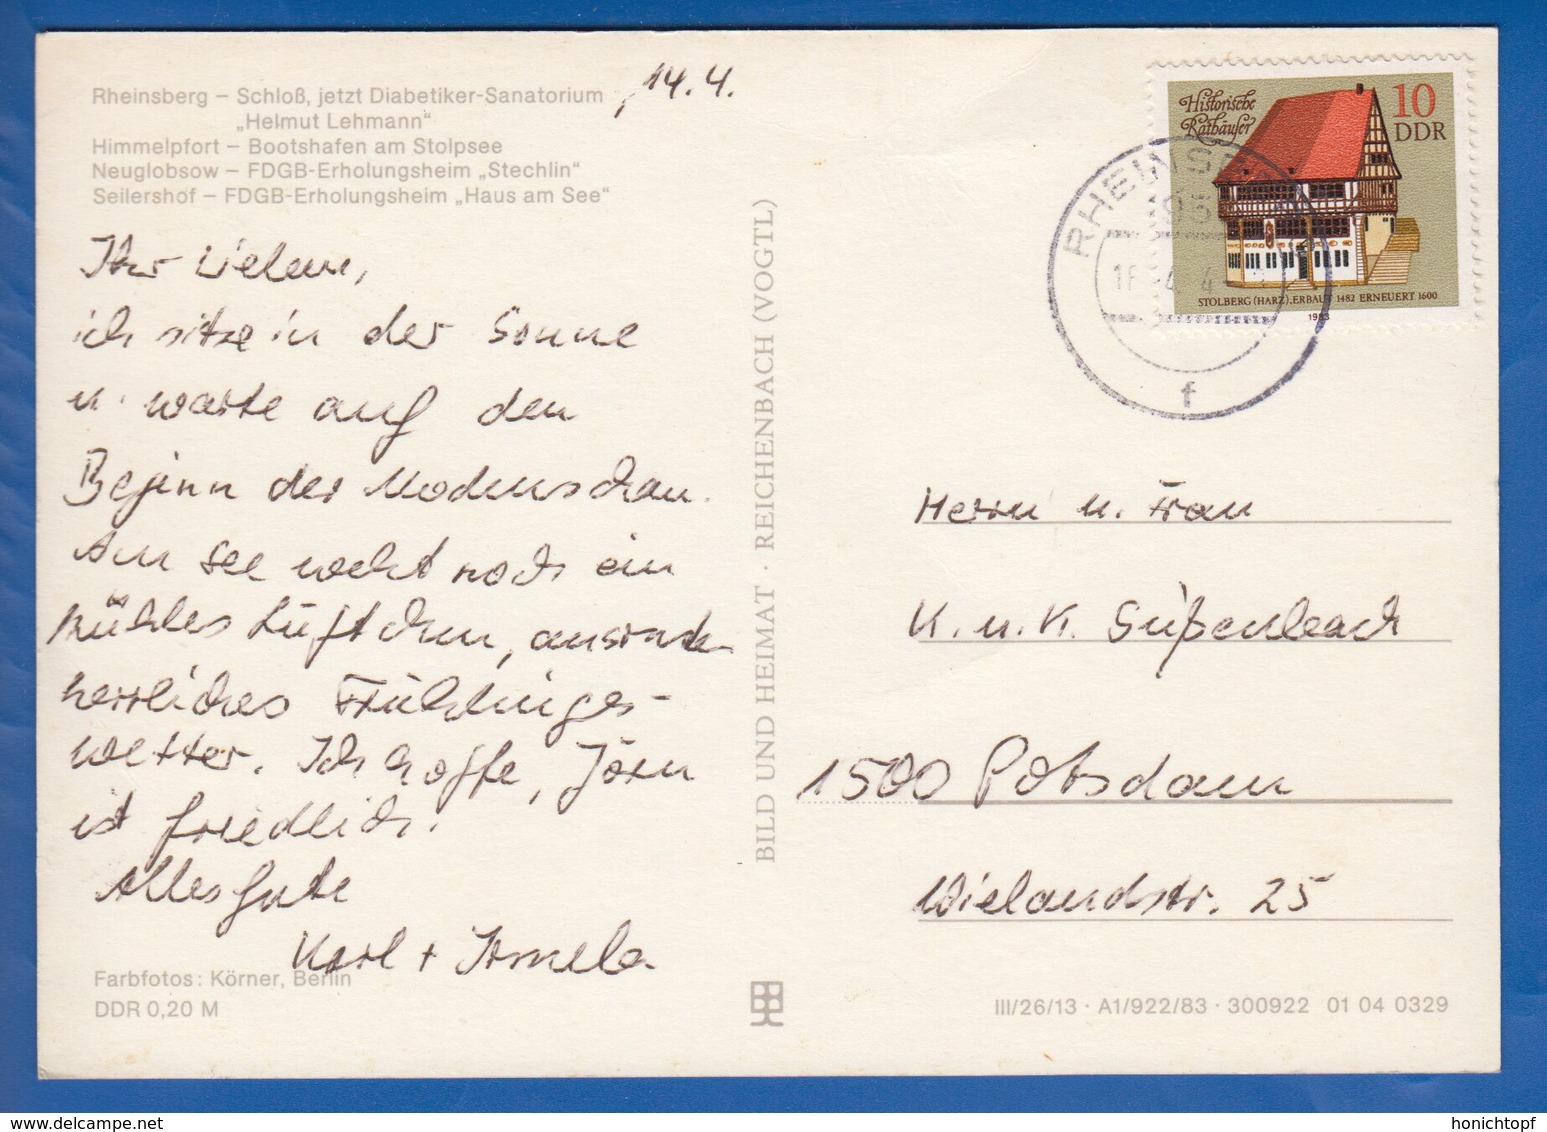 Rheinsberg – Schloß, jetzt Diabetiker-Sanatorium
„Helmut Lehmann“
Himmelpfort – Bootshafen am Stolpsee
Neuglobsow – FDGB-Erholungsheim „Stechlin“
Seilershof – FDGB-Erholungsheim „Haus am See“
14.4.
Ihr Lieben,
ich sitze in der Sonne
u. warte auf den
Beginn der Modenschau.
Am See weht noch ein
kühles Lüftchen, ansonsten
herrliches Frühlings-
wetter. Ich hoffe, Jörn
ist friedlich.
Alles Gute
Karl + Irmela
Farbfotos: Körner, Berlin
DDR 0,20 M
BILD UND HEIMAT · REICHENBACH (VOGTL)
Historische
Rathäuser
10
DDR
STOLBERG (HARZ), ERBAUT 1482 ERNEUERT 1600
1983
RHEINS
f
Herrn u. Frau
K. u. K. Süßenbach
1500 Potsdam
Wielandstr. 25
III/26/13 · A1/922/83 · 300922 01 04 0329
honichtopf